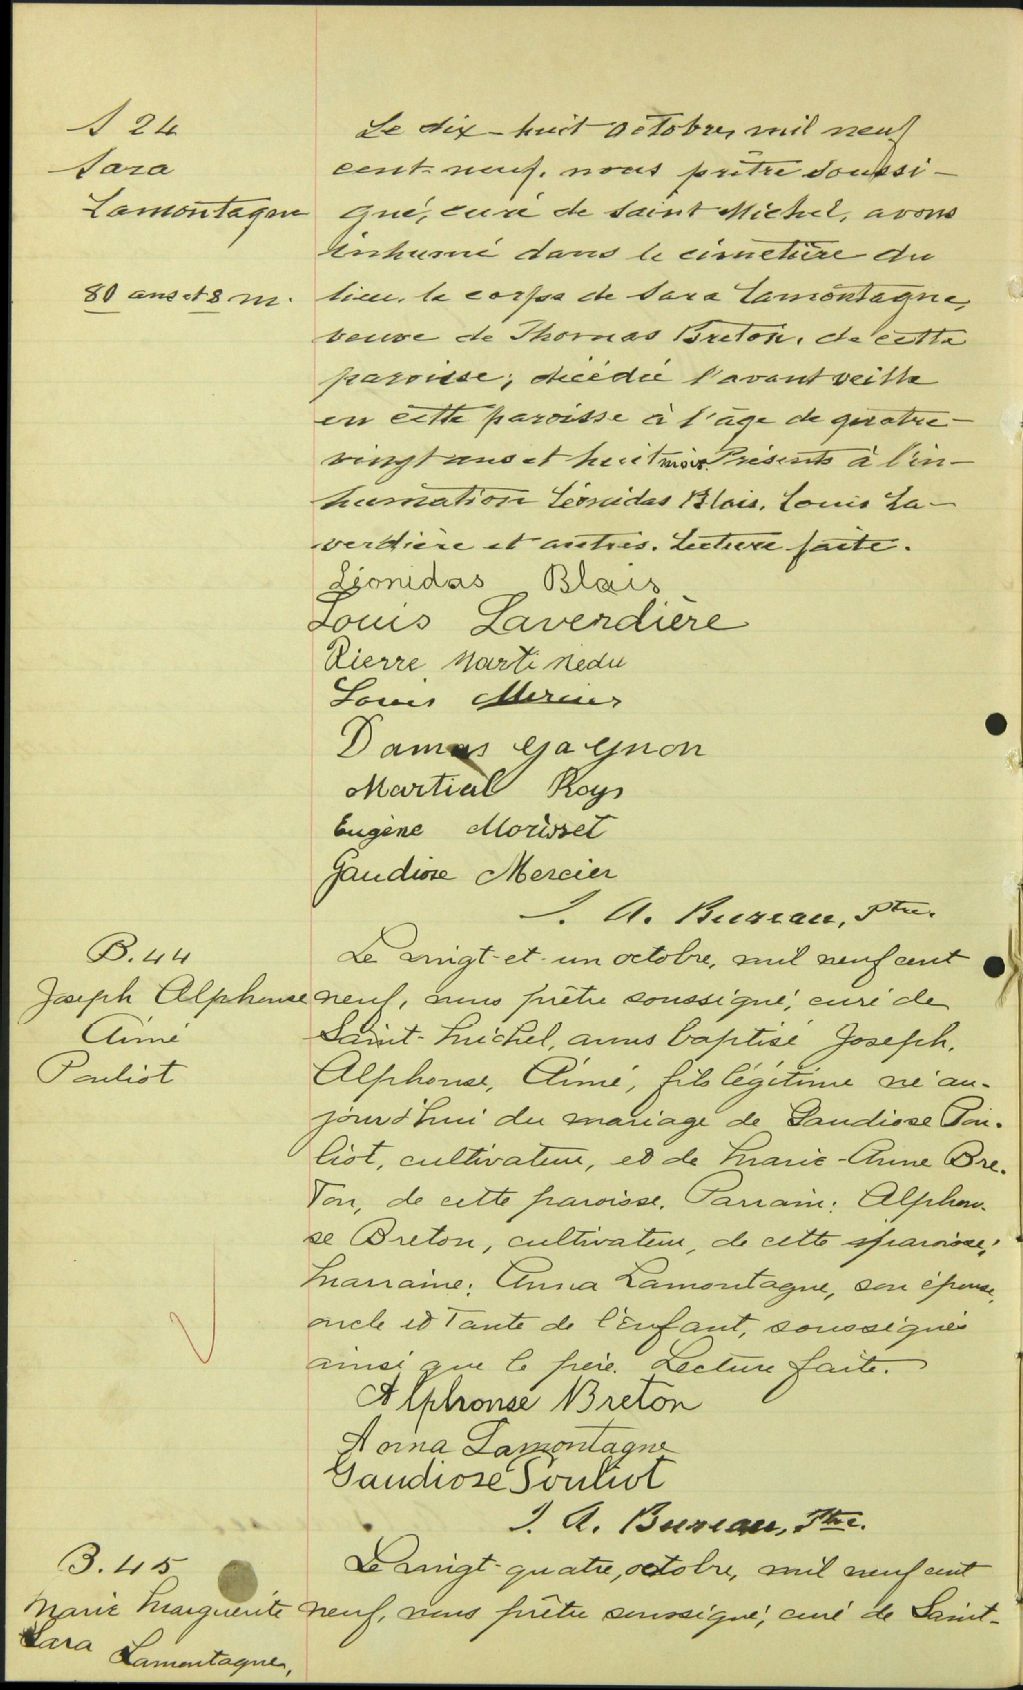 S 24
Sara
Lamontagne
80 ans et 8 m.
Le dix-huit octobre, mil neuf
cent-neuf, nous prêtre soussi-
gné, curé de Saint Michel, avons
inhumé dans le cimetière du
lieu, le corps de Sara Lamontagne,
veuve de Thomas Breton, de cette
paroisse, décédée l'avant veille
en cette paroisse à l'âge de quatre-
vingt ans et huit mois. Présents à l'in-
humation Léonidas Blais, Louis La-
verdière et autres. Lecture faite.
Léonidas Blais
Louis Laverdière
Pierre
Louis Mercier
Damas Gagnon
Martial Roys
Eugène Morisset
Gaudiose Mercier
J. A. Bureau, Ptre.
B. 44
Joseph Alphonse
Aimé
Pouliot
Le vingt-et-un octobre, mil neuf cent
neuf, nous prêtre soussigné, curé de
Saint-Michel, avons baptisé Joseph,
Alphonse, Aimé, fils légitime né au-
jourd'hui du mariage de Gaudiose Pou-
liot, cultivateur, et de Marie-Anne Bre-
ton, de cette paroisse. Parrain: Alphon-
se Breton, cultivateur, de cette paroisse;
Marraine: Anna Lamontagne, son épouse,
oncle et tante de l'enfant, soussignés
ainsi que le père. Lecture faite.
Alphonse Breton
Anna Lamontagne
Gaudiose Pouliot
J. A. Bureau, Ptre.
B. 45
Marie Marguerite
Sara Lamontagne,
Le vingt-quatre, octobre, mil neuf cent
neuf, nous prêtre soussigné, curé de Saint-